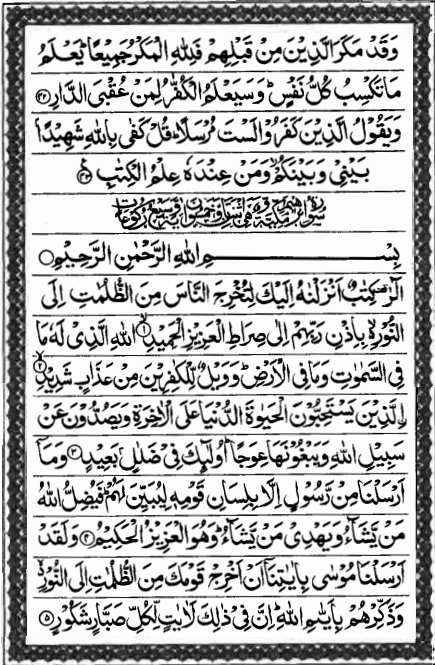 وَقَدْ مَكَرَ الَّذِيْنَ مِنْ قَبْلِهِمْ فَلِلّٰهِ الْمَكْرُ جَمِيْعًا ؕ يَعْلَمُ
مَا تَكْسِبُ كُلُّ نَفْسٍ ؕ وَسَيَعْلَمُ الْكُفّٰرُ لِمَنْ عُقْبَى الدَّارِ ۴۲
وَيَقُوْلُ الَّذِيْنَ كَفَرُوْا لَسْتَ مُرْسَلًا ؕ قُلْ كَفٰى بِاللّٰهِ شَهِيْدًۢا
بَيْنِيْ وَبَيْنَكُمْ ۙ وَمَنْ عِنْدَهٗ عِلْمُ الْكِتٰبِ ۴۳
سورة ابرٰهيم مكية وهى اثنتان وخمسون اٰية وسبع ركوعات
بِسْمِ اللّٰهِ الرَّحْمٰنِ الرَّحِيْمِ
الٓرٰ ۟ كِتٰبٌ اَنْزَلْنٰهُ اِلَيْكَ لِتُخْرِجَ النَّاسَ مِنَ الظُّلُمٰتِ اِلَى
النُّوْرِ ۙ بِاِذْنِ رَبِّهِمْ اِلٰى صِرَاطِ الْعَزِيْزِ الْحَمِيْدِ ۙ ۱ اللّٰهِ الَّذِيْ لَهٗ مَا
فِي السَّمٰوٰتِ وَمَا فِي الْاَرْضِ ؕ وَوَيْلٌ لِّلْكٰفِرِيْنَ مِنْ عَذَابٍ شَدِيْدِ ۙ ۲
اِۨلَّذِيْنَ يَسْتَحِبُّوْنَ الْحَيٰوةَ الدُّنْيَا عَلَى الْاٰخِرَةِ وَيَصُدُّوْنَ عَنْ
سَبِيْلِ اللّٰهِ وَيَبْغُوْنَهَا عِوَجًا ؕ اُولٰٓئِكَ فِيْ ضَلٰلٍۭ بَعِيْدٍ ۳ وَمَاۤ
اَرْسَلْنَا مِنْ رَّسُوْلٍ اِلَّا بِلِسَانِ قَوْمِهٖ لِيُبَيِّنَ لَهُمْ ؕ فَيُضِلُّ اللّٰهُ
مَنْ يَّشَآءُ وَيَهْدِيْ مَنْ يَّشَآءُ ؕ وَهُوَ الْعَزِيْزُ الْحَكِيْمُ ۴ وَلَقَدْ
اَرْسَلْنَا مُوْسٰى بِاٰيٰتِنَاۤ اَنْ اَخْرِجْ قَوْمَكَ مِنَ الظُّلُمٰتِ اِلَى النُّوْرِ ۙ
وَذَكِّرْهُمْ بِاَيّٰىمِ اللّٰهِ ؕ اِنَّ فِيْ ذٰلِكَ لَاٰيٰتٍ لِّكُلِّ صَبَّارٍ شَكُوْرٍ ۵